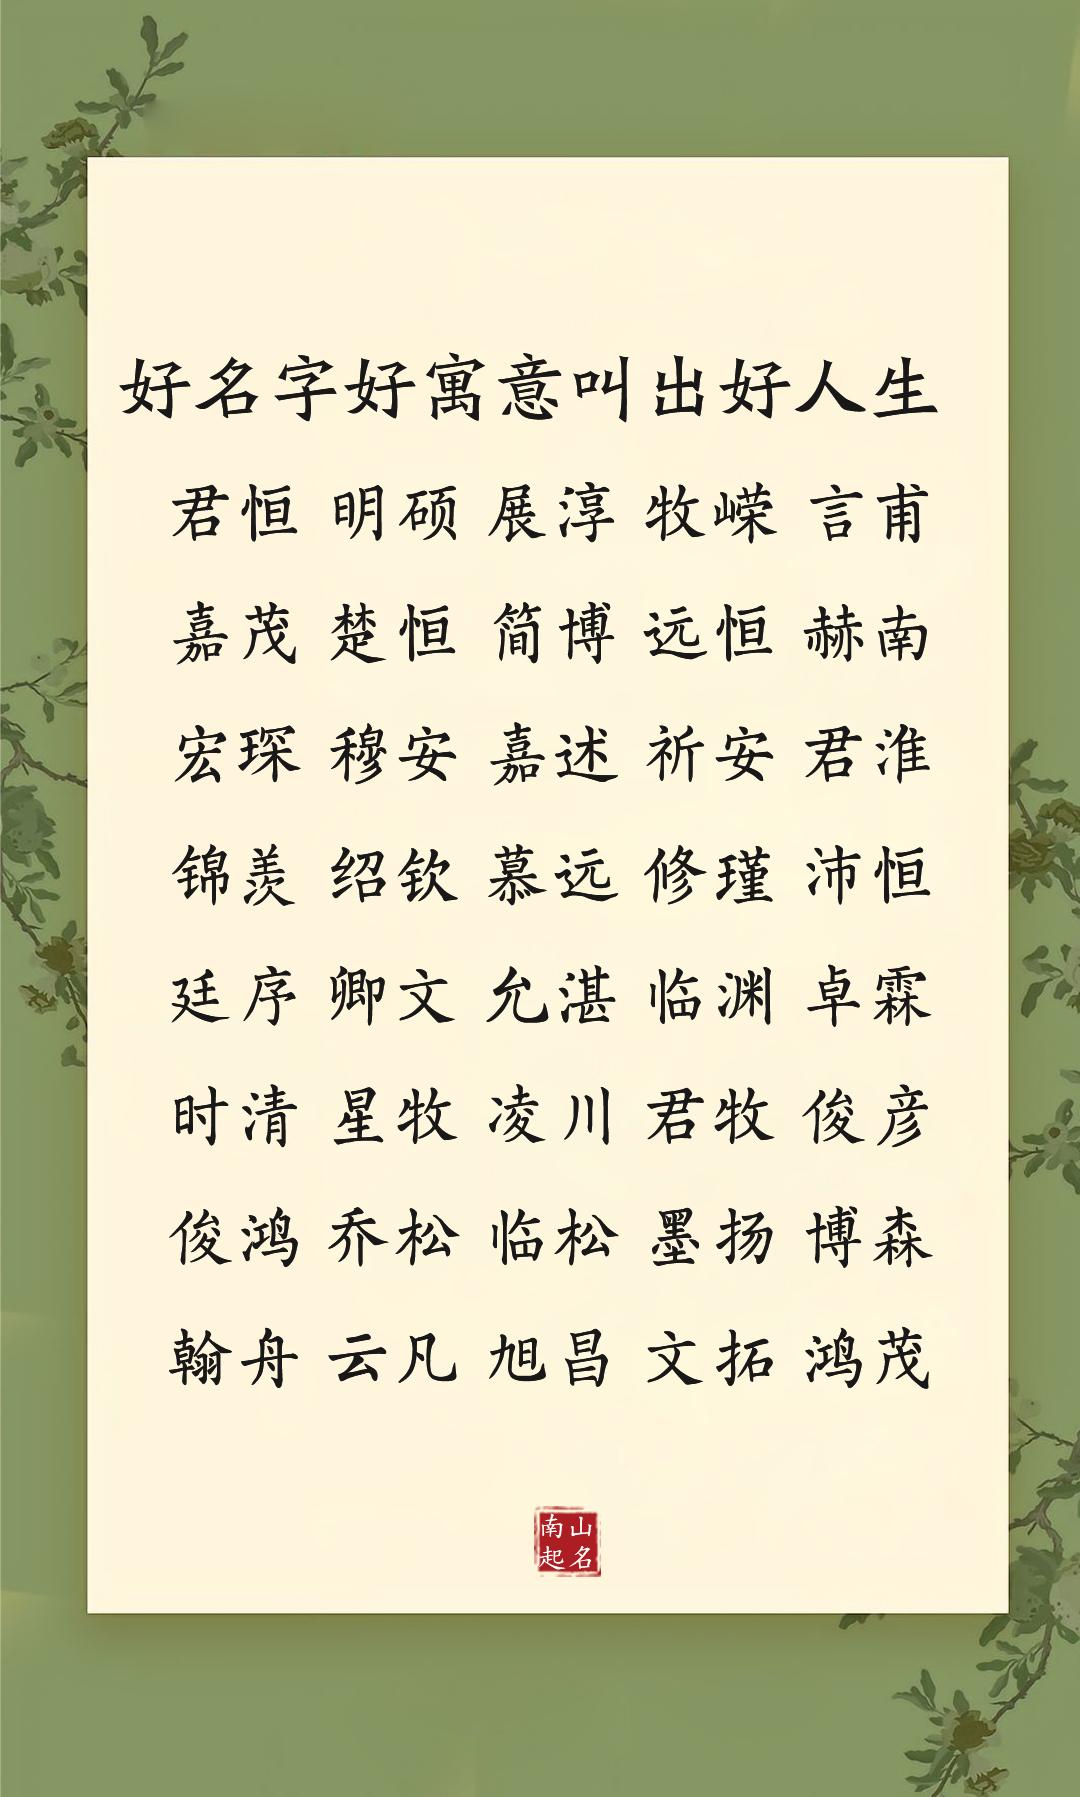 好名字好寓意叫出好人生
君恒 明硕 展淳 牧嵘 言甫
嘉茂 楚恒 简博 远恒 赫南
宏琛 穆安 嘉述 祈安 君淮
锦羡 绍钦 慕远 修瑾 沛恒
廷序 卿文 允湛 临渊 卓霖
时清 星牧 凌川 君牧 俊彦
俊鸿 乔松 临松 墨扬 博森
翰舟 云凡 旭昌 文拓 鸿茂
南山
起名